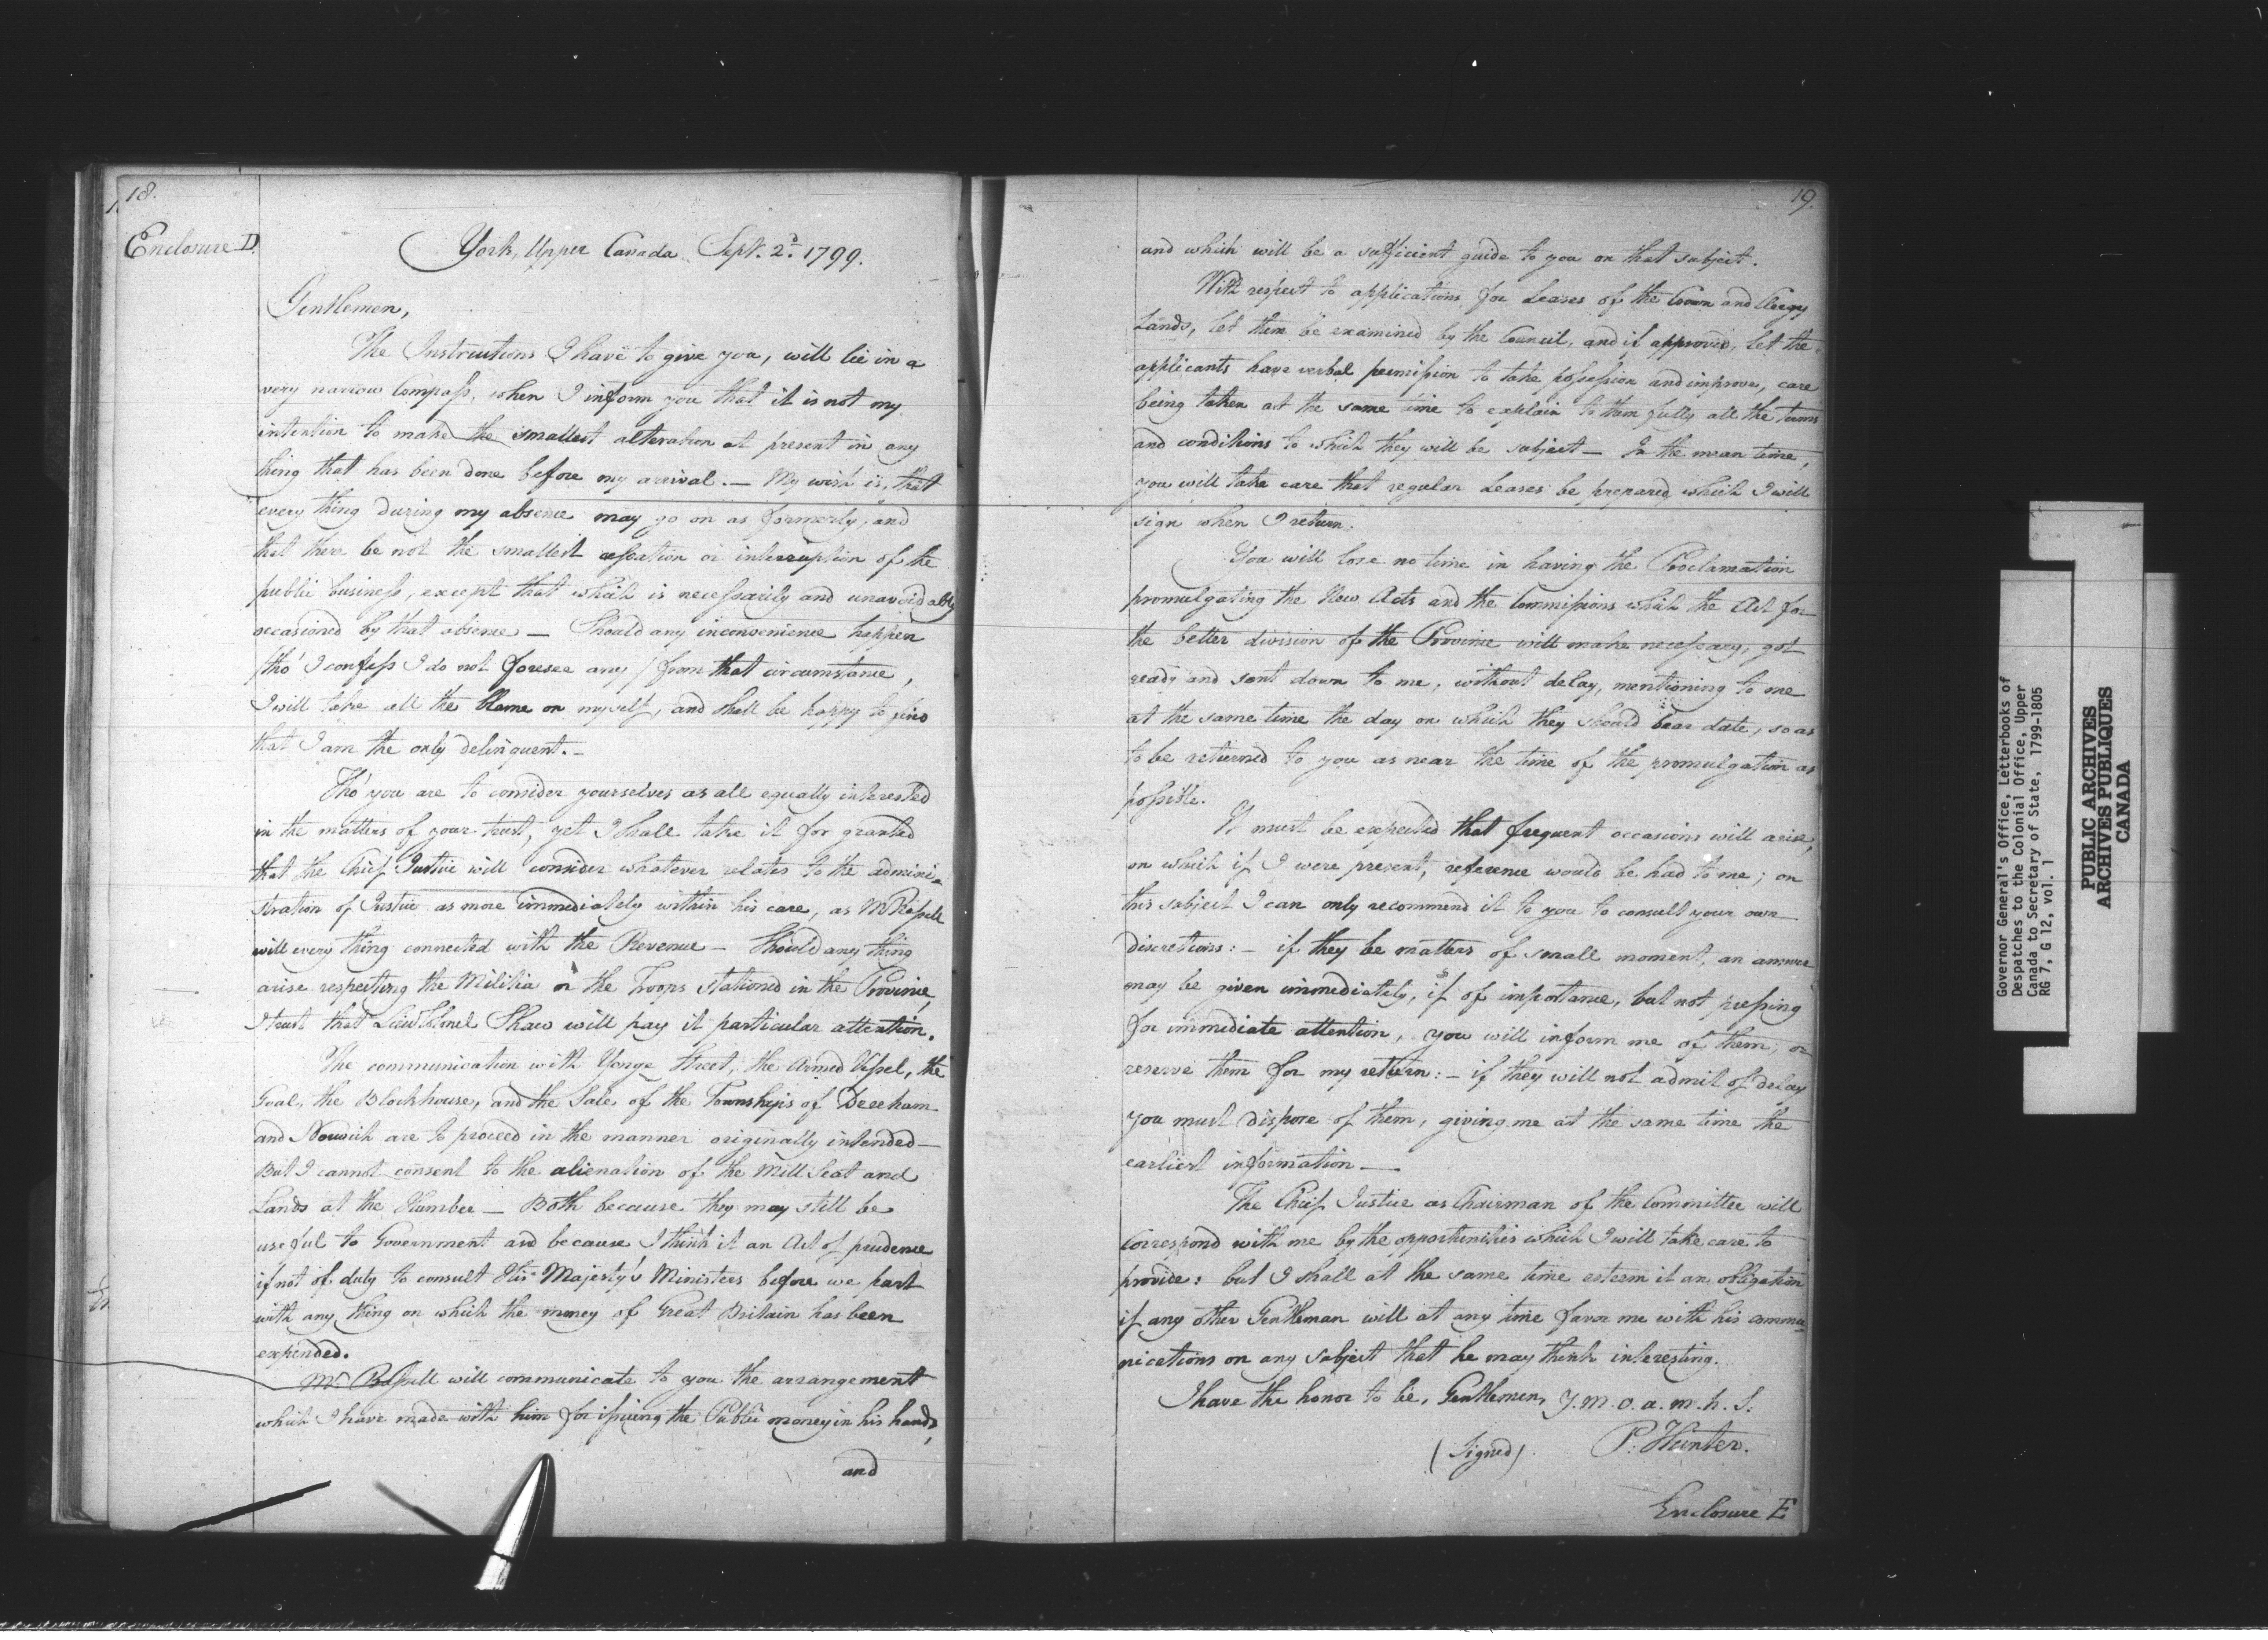 18.
Enclosure D.
York, Upper Canada Sept. 2d. 1799.
Gentlemen,
The Instructions I have to give you, will lie in a
very narrow Compass, when I inform you that it is not my
intention to make the smallest alteration at present in any
thing that has been done before my arrival. — My wish is, that
every thing during my absence may go on as formerly, and
that there be not the smallest cessation or interruption of the
public business, except that which is necessarily and unavoidably
occasioned by that absence — Should any inconvenience happen
/tho' I confess I do not foresee any / from that circumstance,
I will take all the blame on myself, and shall be happy to find
that I am the only delinquent. —
Tho' you are to consider yourselves as all equally interested
in the matters of your trust, yet I shall take it for granted
that the Chief Justice will consider whatever relates to the admini=
stration of Justice as more immediately within his care, as Mr Russell
will every thing connected with the Revenue — Should any thing
arise respecting the Militia or the Troops stationed in the Province,
I trust that Lieut Colonel Shaw will pay it particular attention.
The communication with Yonge Street, the Armed Vessel, the
Goal, the Blockhouse, and the Sale of the Townships of Dereham
and Norwich are to proceed in the manner originally intended —
But I cannot consent to the alienation of the Mill Seat and
Lands at the Humber — Both because they may still be
useful to Government and because I think it an Act of prudence
if not of duty to consult His Majesty's Ministers before we part
with any thing on which the money of Great Britain has been
expended.
Mr. Russell will communicate to you the arrangement
which I have made with him for issuing the Public money in his hands,
and
19.
and which will be a sufficient guide to you on that subject.
With respect to applications for Leases of the Crown and Clergy
Lands, let them be examined by the Council, and if approved, let the
applicants have verbal permission to take possession and improve, care
being taken at the same time to explain to them fully all the terms
and conditions to which they will be subject — In the mean time,
you will take care that regular Leases be prepared which I will
sign when I return.
You will lose no time in having the Proclamation
promulgating the New Acts and the Commissions which the Act for
the better division of the Province will make necessary, got
ready and sent down to me, without delay, mentioning to me
at the same time the day on which they should bear date, so as
to be returned to you as near the time of the promulgation as
possible.
It must be expected that frequent occasions will arise,
on which if I were present, reference would be had to me; on
this subject I can only recommend it to you to consult your own
discretions: — if they be matters of small moment, an answer
may be given immediately, if of importance, but not pressing
for immediate attention, you will inform me of them, or
reserve them for my return: — if they will not admit of delay
you must dispose of them, giving me at the same time the
earliest information —
The Chief Justice as Chairman of the Committee will
correspond with me by the opportunities which I will take care to
provide: but I shall at the same time esteem it an obligation
if any other Gentleman will at any time favor me with his commu=
nications on any subject that he may think interesting.
I have the honor to be, Gentlemen, Y. m. o. a. m. h. S.
(Signed) P. Hunter.
Enclosure E
Governor General's Office, Letterbooks of
Despatches to the Colonial Office, Upper
Canada to Secretary of State, 1799-1805
RG 7, G 12, vol. 1
PUBLIC ARCHIVES
ARCHIVES PUBLIQUES
CANADA